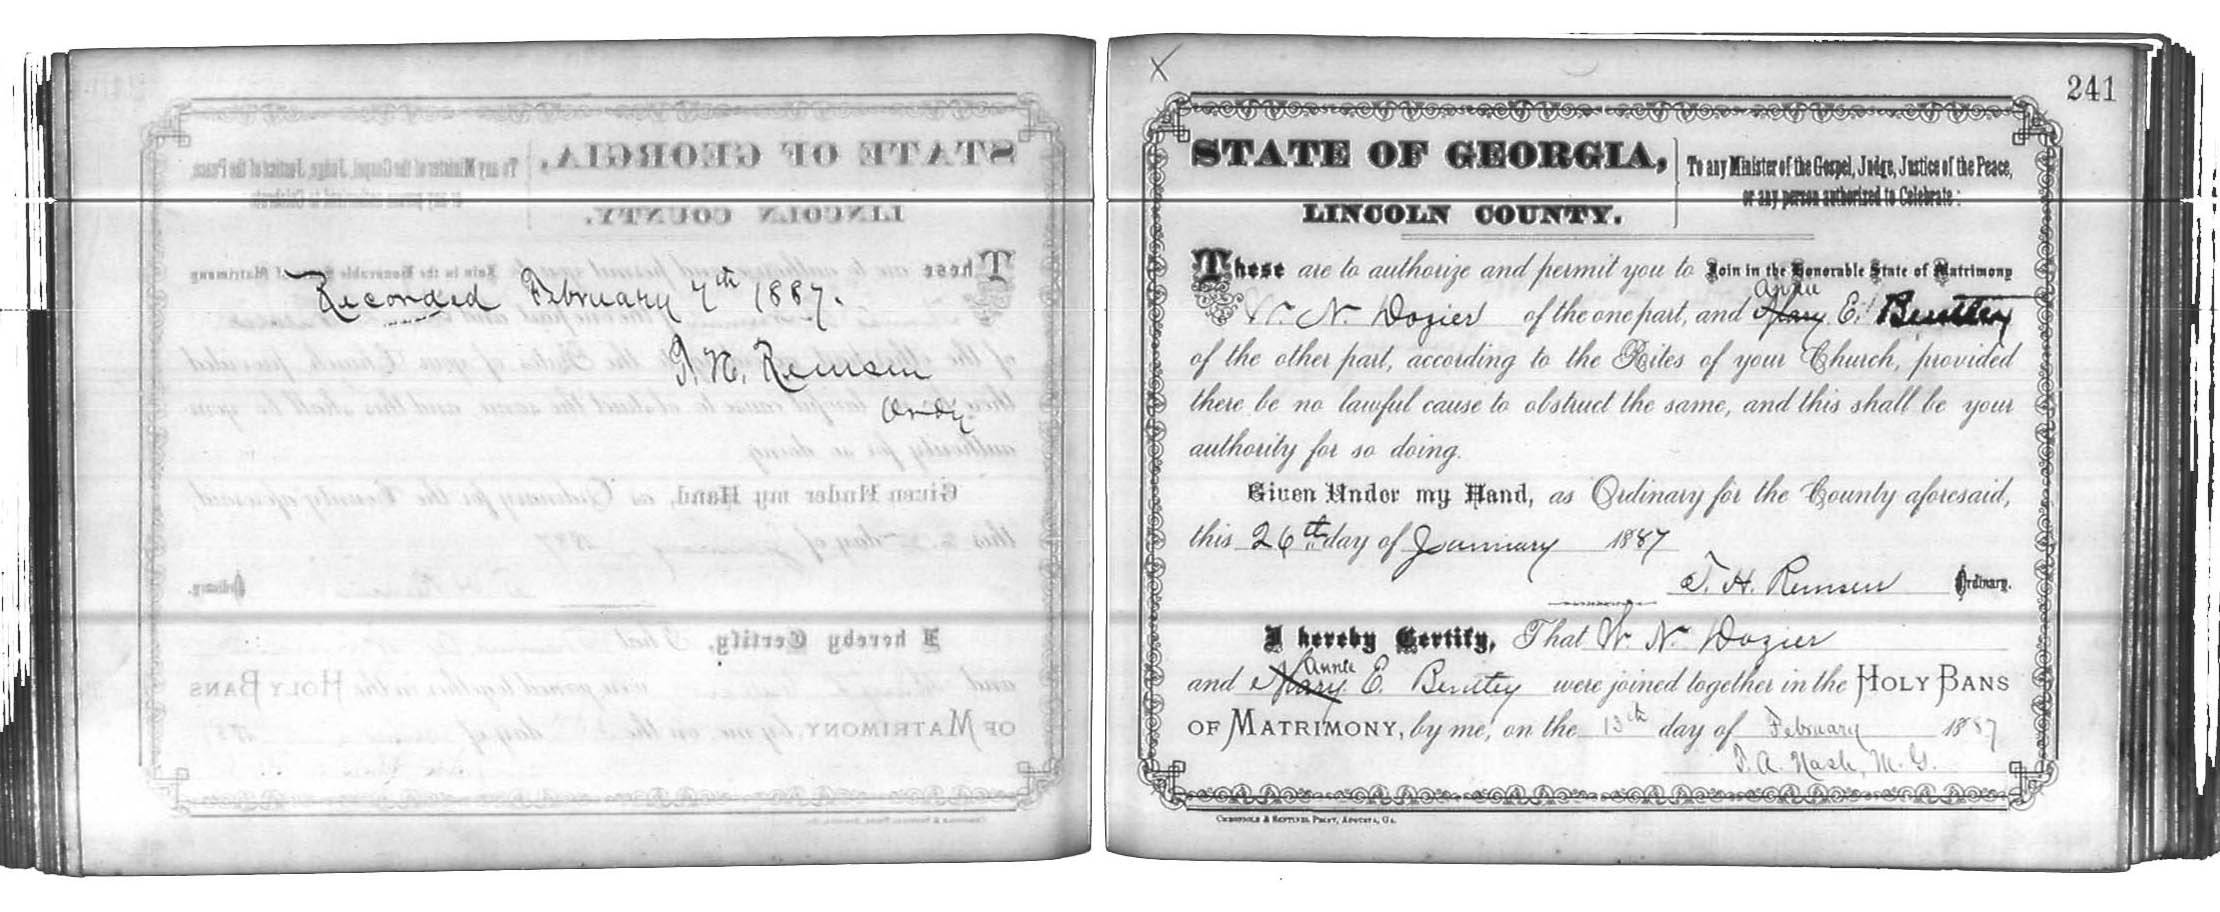 Recorded February 7th 1887.
T. H. Remsen
Ordy.
X
241
STATE OF GEORGIA,
LINCOLN COUNTY.
To any Minister of the Gospel, Judge, Justice of the Peace,
or any person authorized to Celebrate:
These are to authorize and permit you to Join in the Honorable State of Matrimony
Annie
W. N. Dozier of the one part, and Mary E. Bentley
of the other part, according to the Rites of your Church, provided
there be no lawful cause to obstruct the same, and this shall be your
authority for so doing.
Given Under my Hand, as Ordinary for the County aforesaid,
this 26th day of January 1887
T. H. Remsen Ordinary.
I hereby Certify, That W. N. Dozier
Annie
and Mary E. Bentley were joined together in the HOLY BANS
OF MATRIMONY, by me, on the 13th day of February 1887
T. A. Nash, M. G.
CHRONICLE & SENTINEL PRINT, AUGUSTA, GA.